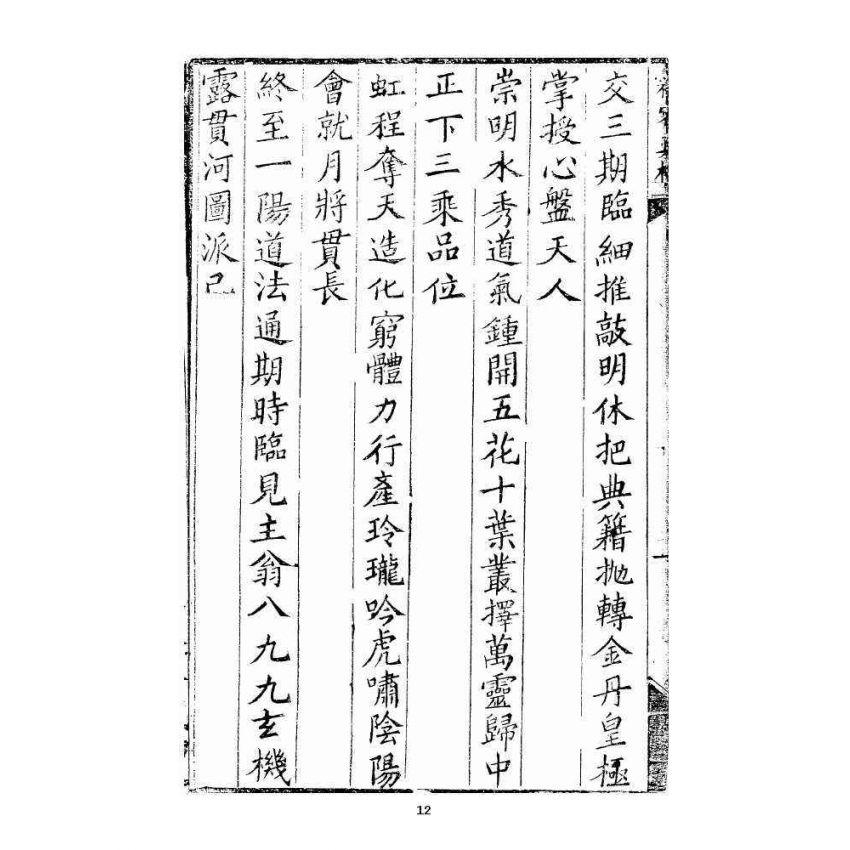 交三期臨細推敲明休把典籍拋轉金丹皇極
掌授心盤天人
崇明水秀道氣鍾開五花十葉叢擇萬靈歸中
正下三乘品位
虹程奪天造化窮體力行產玲瓏吟虎嘯陰陽
會就月將貫長
終至一陽道法通期時臨見主翁八九九玄機
露貫河圖派己
12